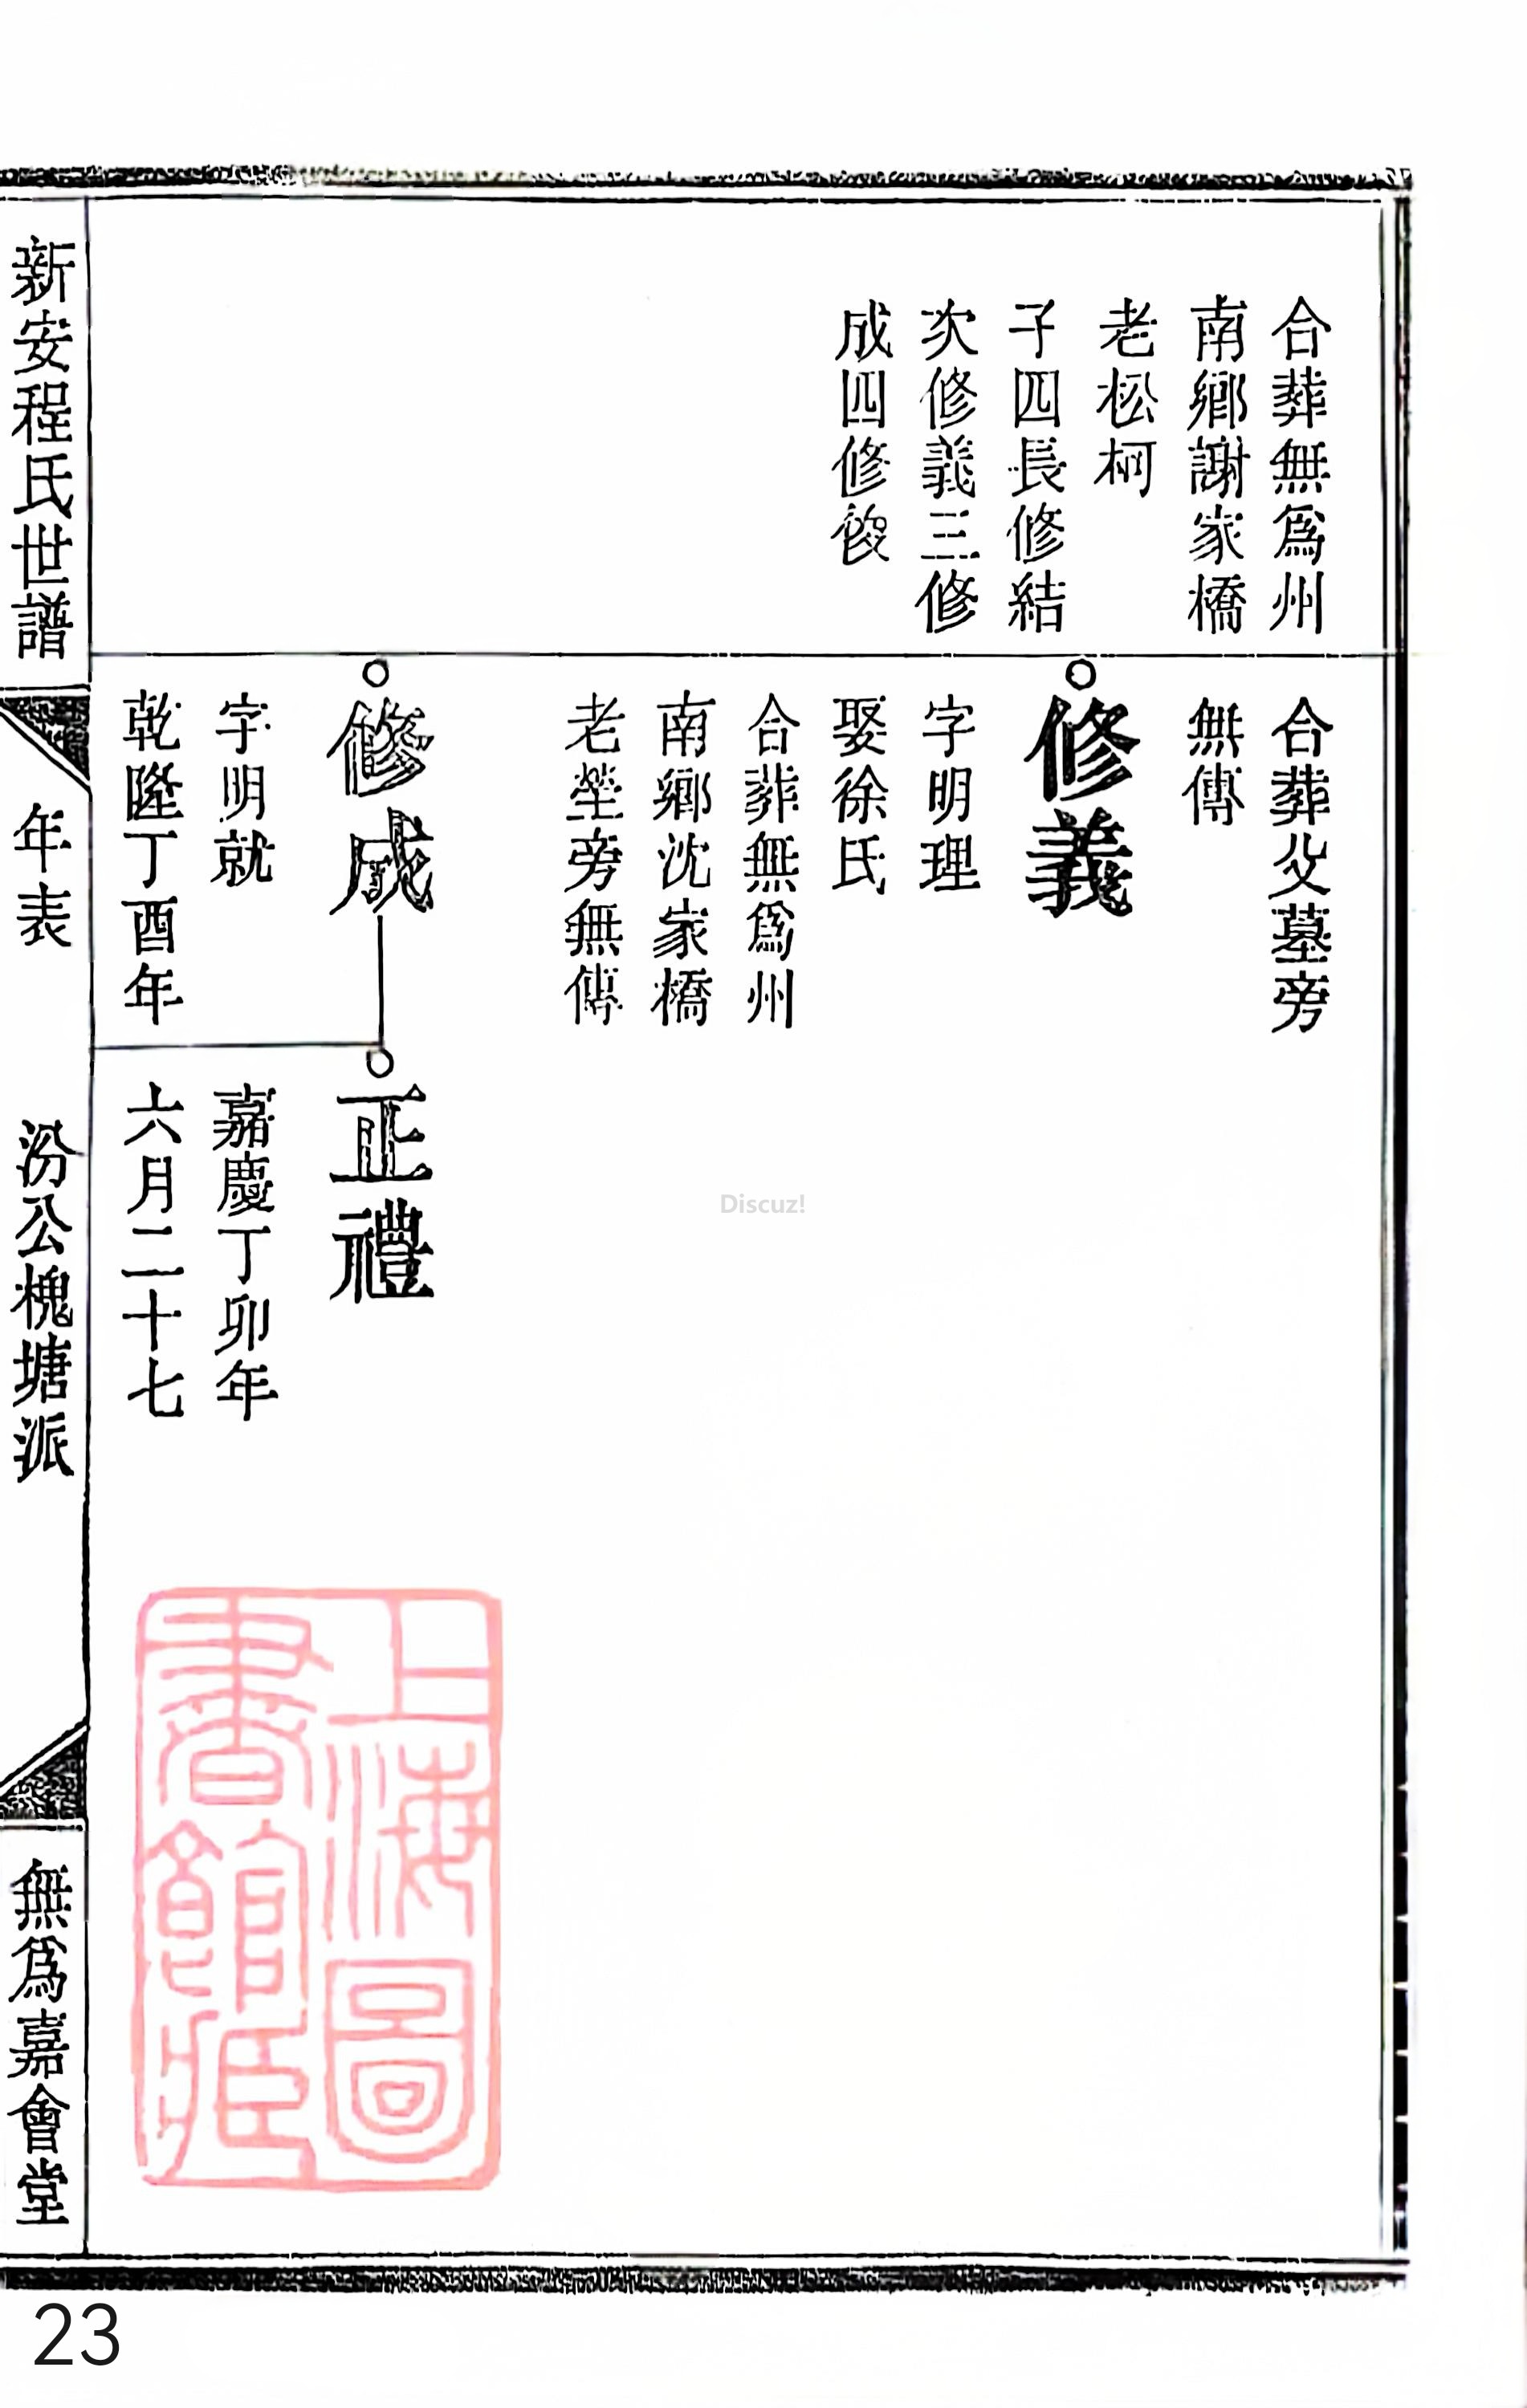 合葬無爲州
南鄉謝家橋
老松柯
子四長修結
次修義三修
成四修
合葬父墓旁
無傳
修義
字明理
娶徐氏
合葬無爲州
南鄉沈家橋
老塋旁無傳
修成
字明就
乾隆丁酉年
正禮
嘉慶丁卯年
六月二十七
新安程氏世譜
年表
汾公槐塘派
無爲嘉會堂
上海圖書館藏
Discuz!
23